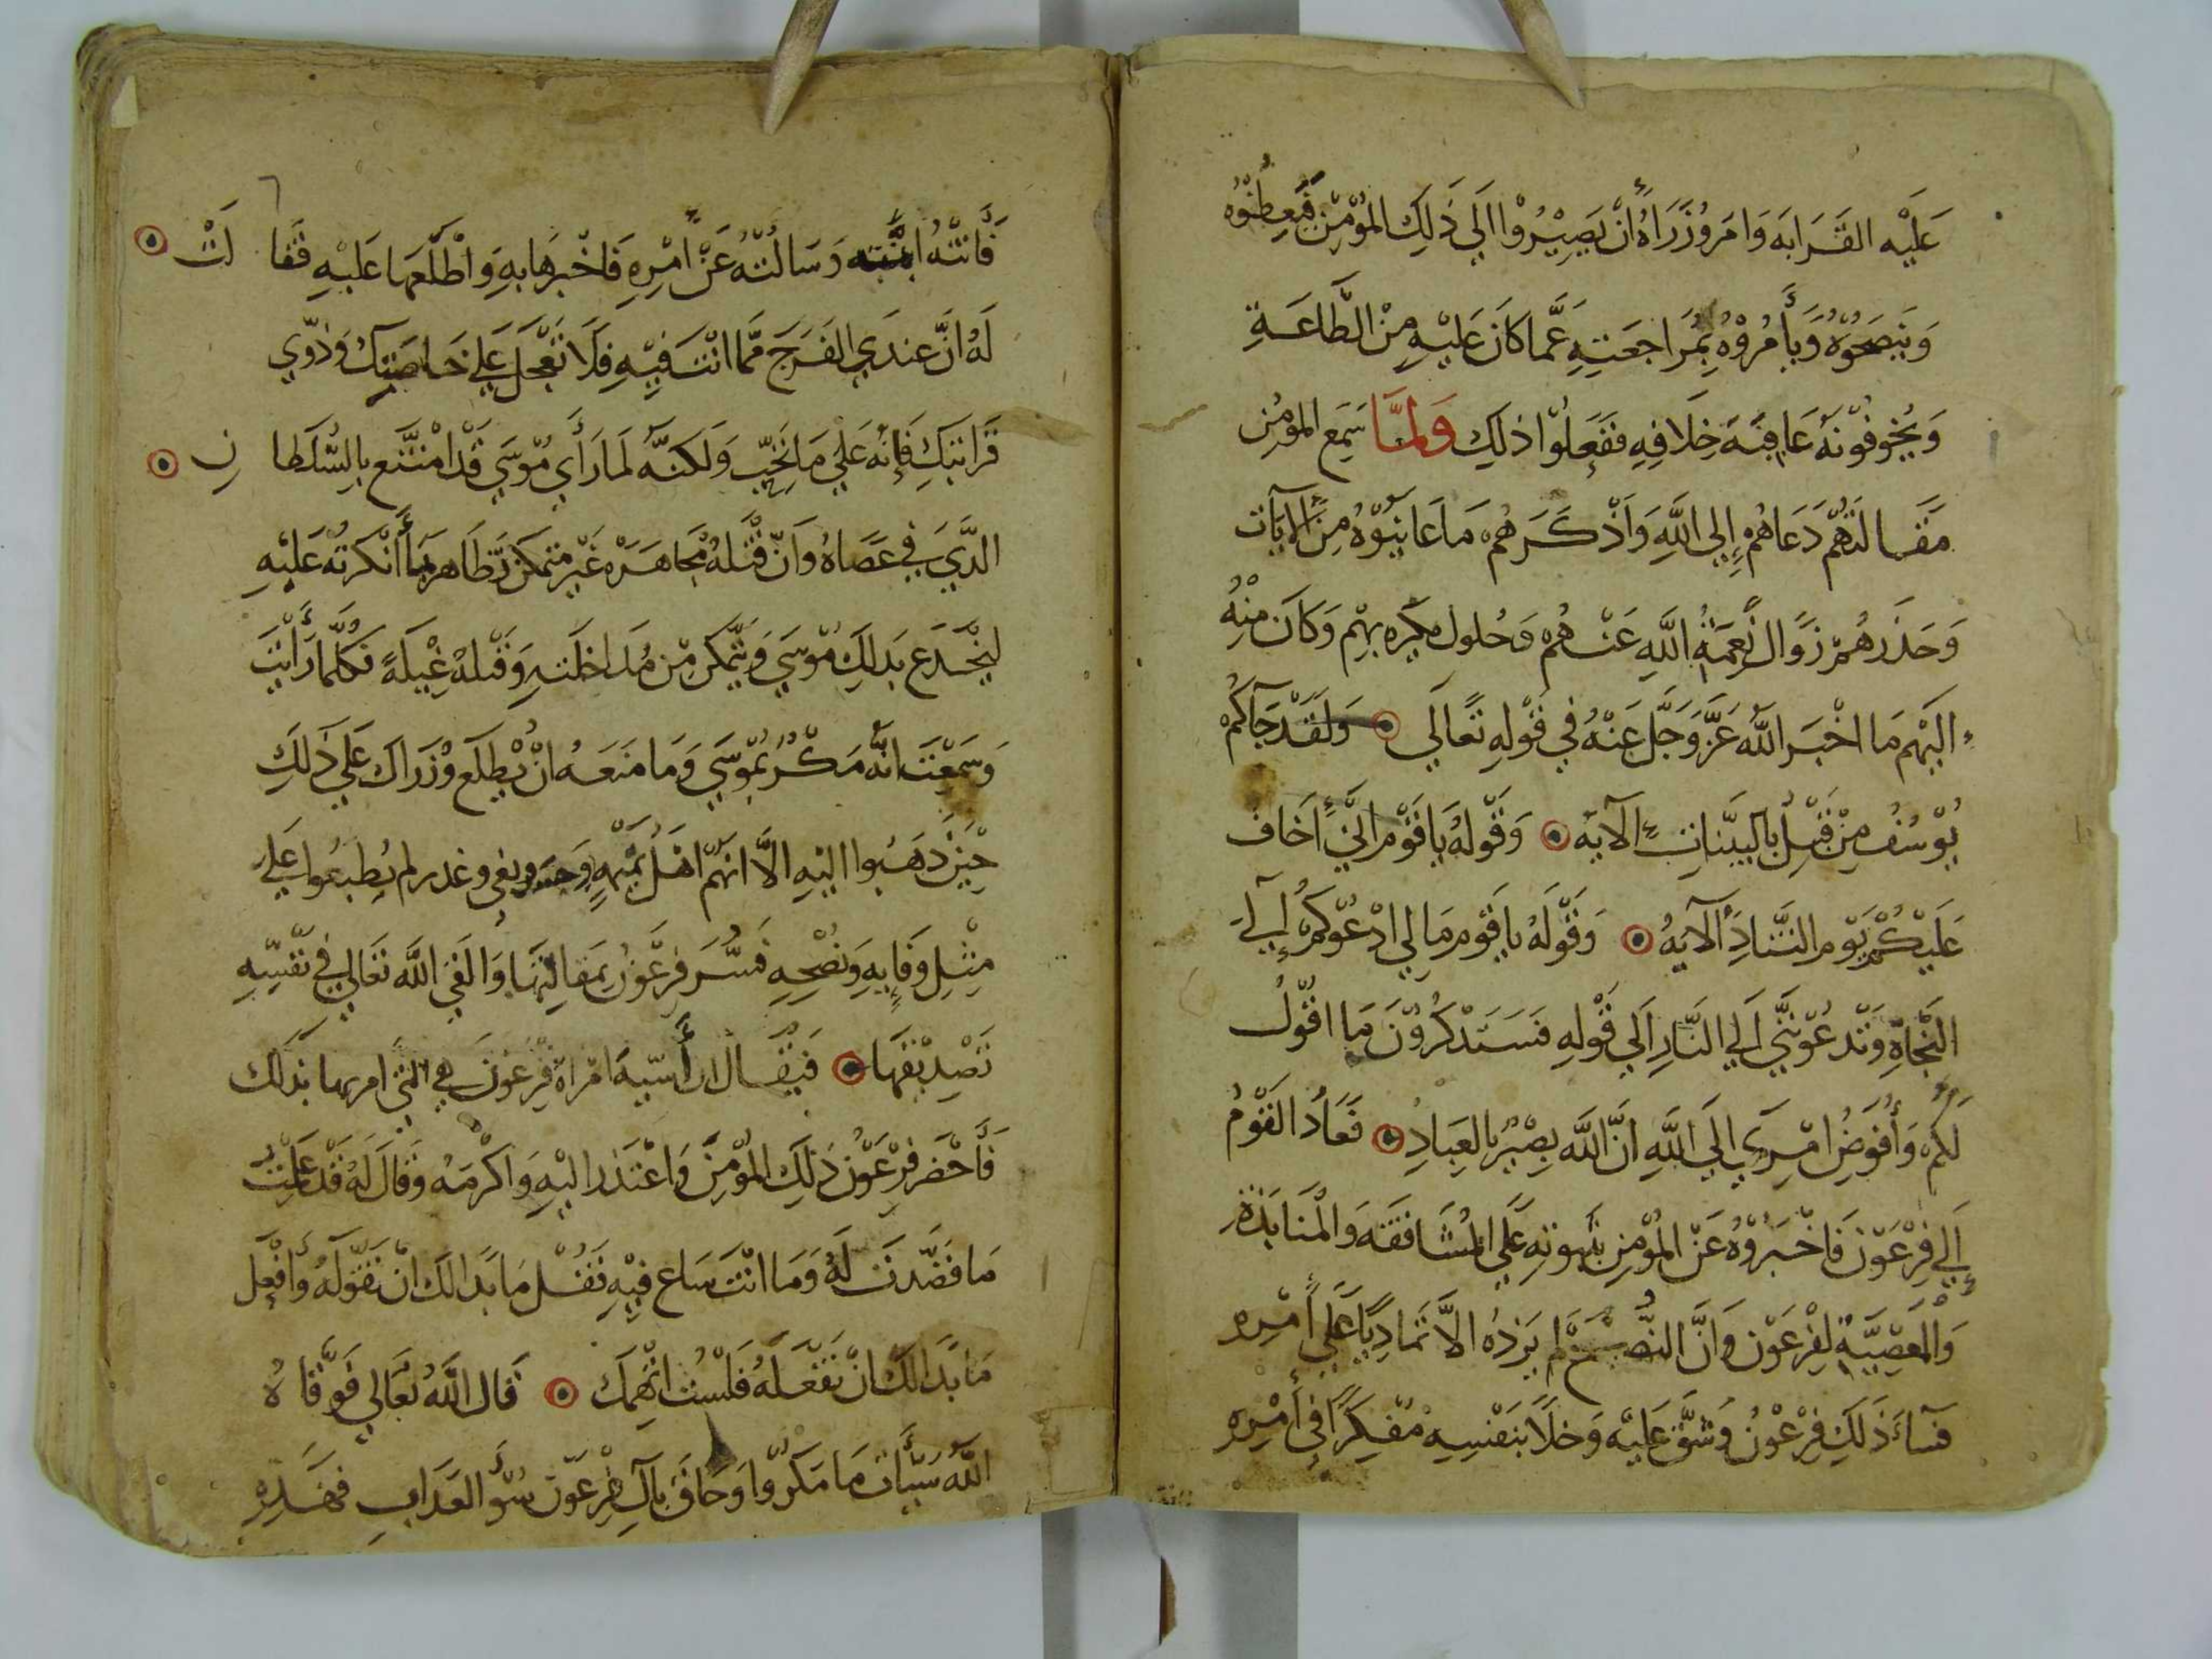 عَلَيْه القَرَابَه وَامَر وُزَرَاءَهُ أنْ يَصِيْرُوْا الَي ذَلِكَ المُؤمِنْ فَيَعِظُوْه
وَيَنصَحُوُهُ وَيأمُرُوْهُ بِمُرَاجَعَتِهِ عَمَّا كَانَ عَلَيْهِ مِنْ الطَّاعَةِ
وَيُخوِفُوْنَهُ عَاقِبَةَ خِلَافِهِ ففَعَلُوْا ذلِكَ وَلمَّا سَمِع المؤمُن
مَقَالَتَهُمْ دَعَاهُمْ إِلي اللَّهِ وَاذْكَرَهُمْ مَاعَايَنُوْهُ مِنَ الآيَات
وَحَذَرهُمْ زَوَال نِعمَةِ اللَّهِ عَنْهُمْ وَحُلول مَكرِه بِهِمْ وَكَانَ مِنْهُ
الَيْهِم مَا اخْبَر اللَّهُ عَزَّ وَجَلَّ عَنْهُ فِي قَوْلِهِ تَعَالَي وَلَقَدْ جَآكُمْ
يُوْسُفُ مِنْ قَبْلُ بالبَيِّنَاتِ الآيَه وَقَوْلهُ يَاقَوْم اِنيّ اَخَاف
عَلَيْكُمْ يَوْم التَّنَادِ الآيَهُ وَقَوْلَهُ يا قَوْم مَا لِي ادْعُوْكُمْ إلَي
النَّجَاهِ وَتَدعُوْنَنِي اَلي النَّارِ اَلي قَوْلهِ فَسَتَذْكُرُوْنَ مَا اقُوْلُ
لَكُمْ وَأُفَوِضُ امْرِي الَي اللَّهِ اِنَّ اللَّهَ بِصِيْرٌ بالعِبَادِ فَعَادُ القَوْمُ
إلَي فِرْعَوْنَ فَاخْبَرُوْهُ عَنْ المُؤمِنِ بثَبوتِهِ عَلَي المُشَاقَقَة وَالْمنَابَذَةِ
وَالْمَعْصِيَةِ لِفِرْعَوْن وَانَّ النُّصْحَ لَم يَزدْهُ الاَّ تَمَادِيًا عَلَي أمْرِهِ
فَسآءَ ذَلِكَ فِرْعَوْنُ وَشَقَّ عَلَيْهِ وَخلَا بنَفْسِهِ مُفَكِرًا فِي أمْرِهِ
فَاتتْهُ ابنَّته وَسَالَتْهُ عَنْ أمْرِهِ فَاخْبَرهَا بهِ وَاطْلَعَهَا عَلَيْهِ فقَا لَتْ
لَهُ انَّ عندَي الفَرَجَ مِمَّا انْتَ فِيْهِ فَلَا تَعْجَل عَلَي خَاصَتِكَ وَذوِي
قَرَابَتِكَ فَإنهُ عَلَي مَا تُحِبّ وَلَكنَّه لَمَا رَأي مُوْسَي قَدْ امْتَنَع بالسُّلَطا نِ
الذَّيَ فِي عَصَاهُ وَانّ قتْلَهُ مجَاهَرَهْ غَيْر متمَكن تَظَاهَر بمَا أنْكَرتُهُ عَلَيْهِ
ليَخْدَع بَذلِكَ مُوْسَي وَيَتَمَكن مِنْ مُدَاخلَتهِ وَقَتْلهُ غِيْلَةً فكُلَّمَا رَأَيْتَ
وَسَمعْتَ انَّهُ مَكْرٌ بِمُوْسَي وَمَا مَنَعَهُ انْ يُطلِع وُزَرَاكَ عَلي ذَلِكَ
حِيْنَ ذَهَبُوا اليْهِ الاَّ انهُمْ اهْلُ بهْتٍ وَحسد وبغى وغدر لم يُطبَعُوا عَلَي
مِثْلِ وَفَايِهِ وَنُصْحِهِ فَسُرَّ فِرْعَوْنُ بِمَقالِتهَا وَالقَي اللَّه تَعَالي فِي نَفْسِهِ
تَصْدِيْقهَا فَيُقَال ان أسِيَه امْرَاة فِرْعَوْنَ هِي التي امرتها بَذلَك
فَأحْضَر فِرْعَوْنُ ذَلِكَ المُؤمِنَ وَاعْتَذَر اليْهِ وَاكْرمَهُ وَقالَ لَهُ قَدْ عَلمْتُ
مَا قَصَدْتَ لَهُ وَمَا انْتَ سَاع فِيْهِ فَقُلْ مَا بَدَا لَكَ انْ تَقوْلَهُ وَافْعِل
مَا بَدَا لَكَ انْ تَفْعَلَهُ فَلَسْتُ اتْهِمُكَ قَال اللَّهُ تعَالَي فَوَقَا هُ
اللَّهُ سَيِّأَت مَا مَكَرُوْا وَحَاقَ بآل فِرْعَوْن سُوْءَ العَذَابِ فهَذِهِ